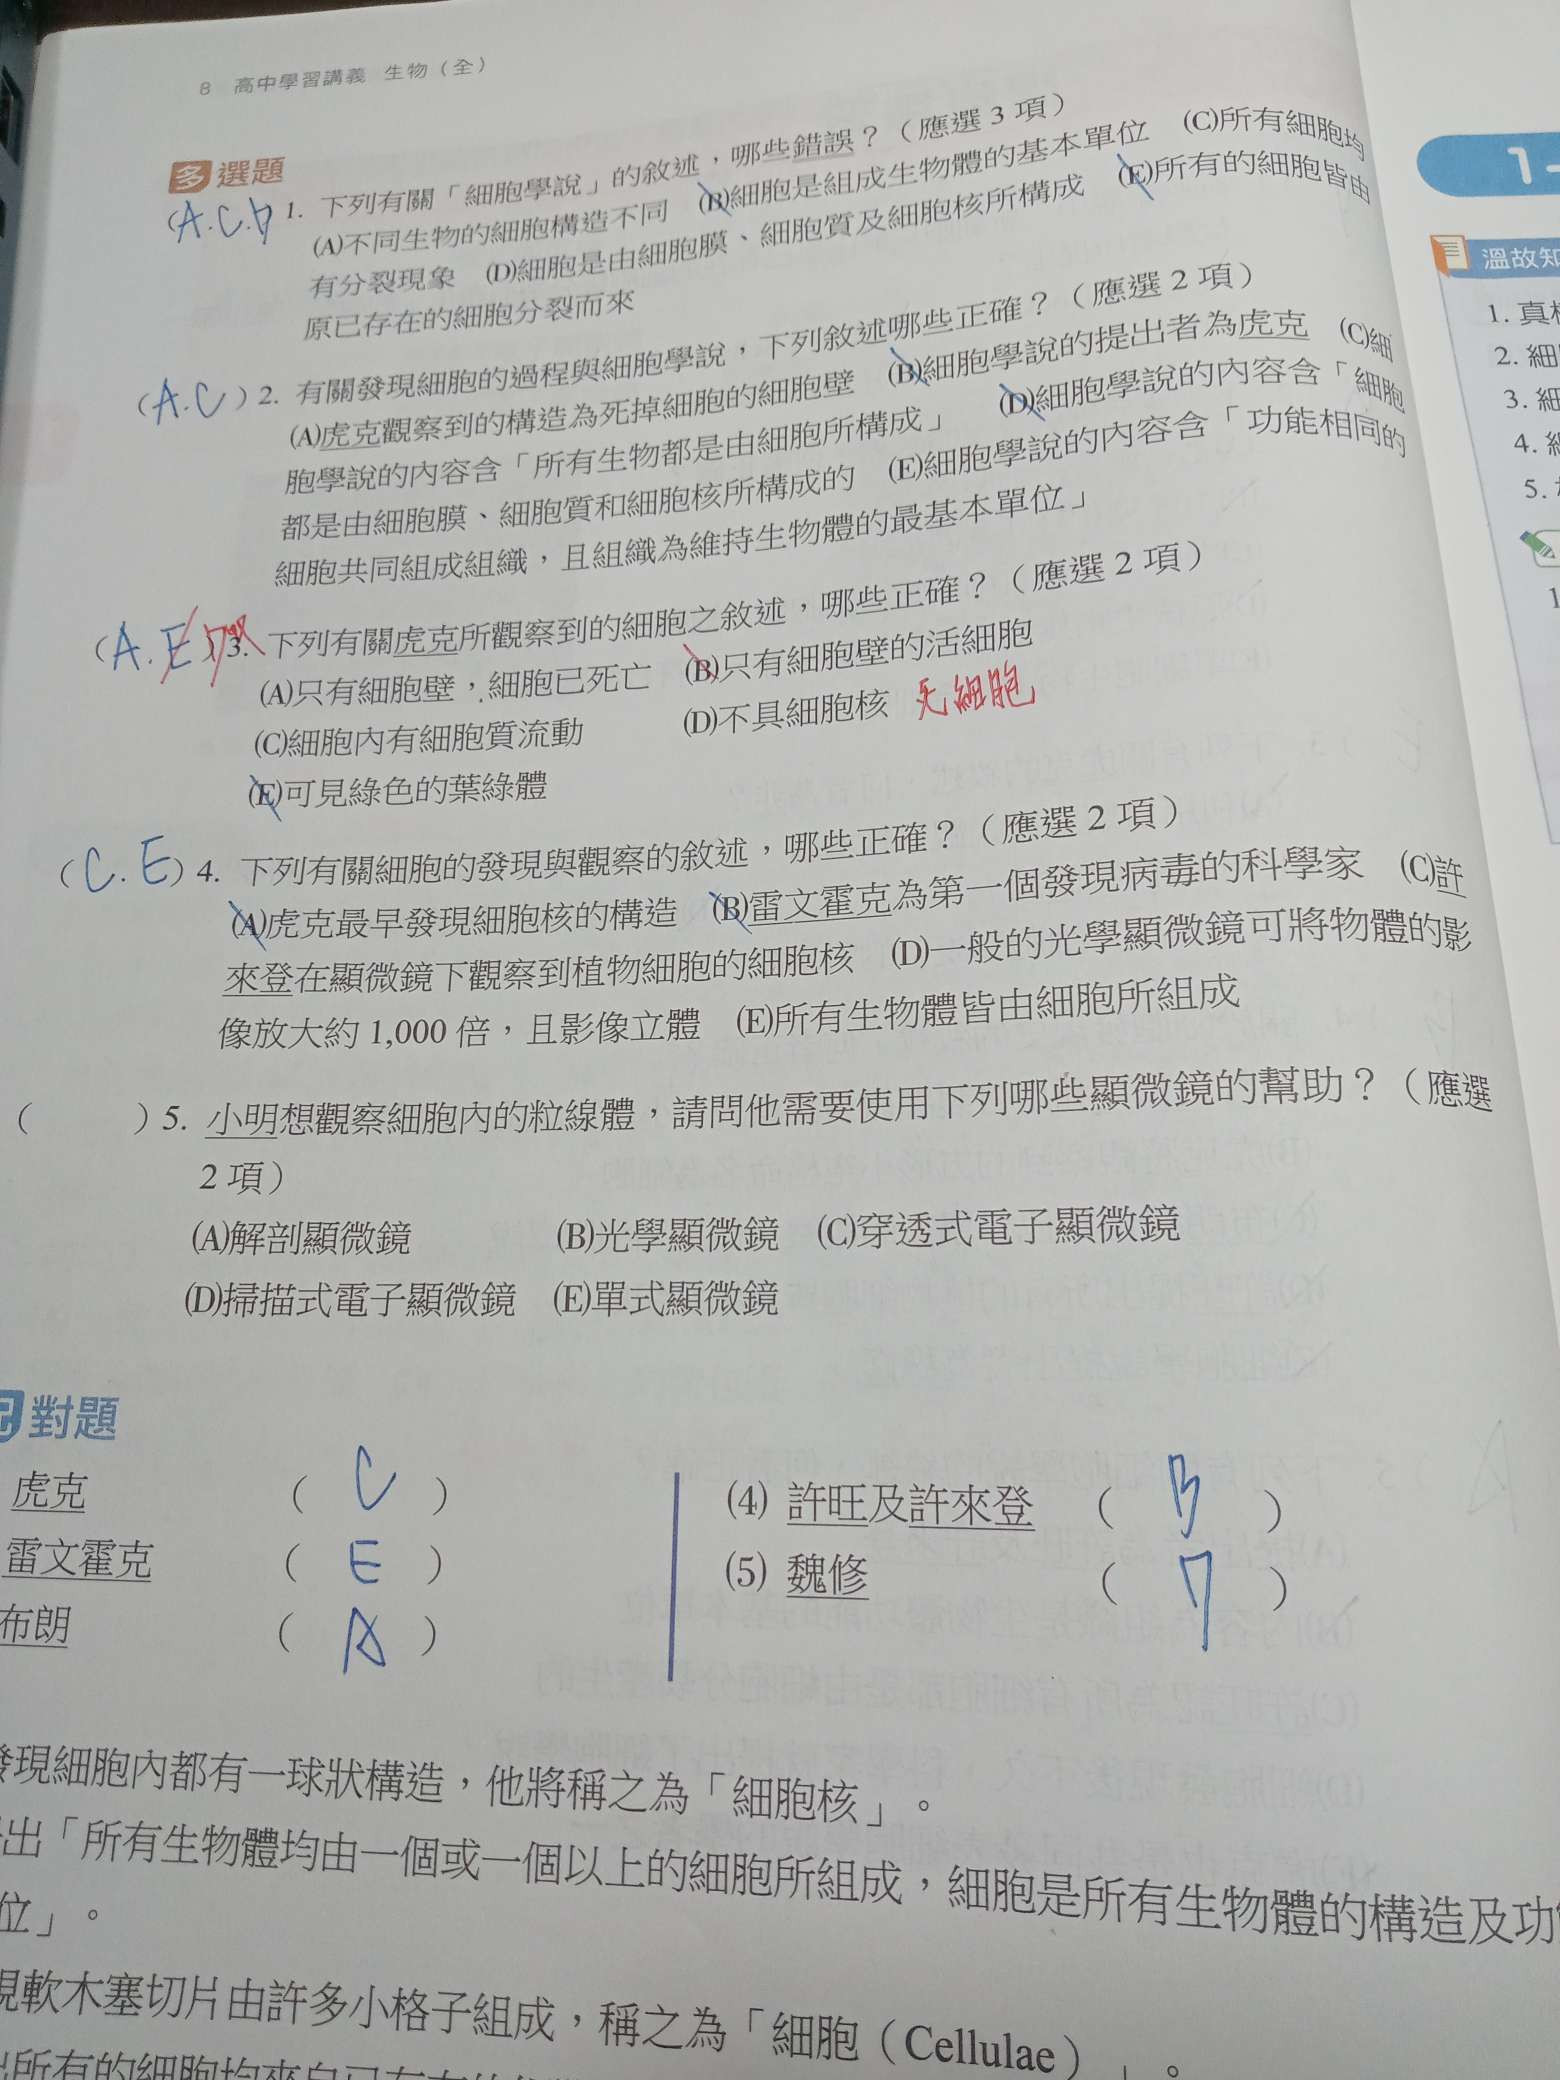 8 高中學習講義 生物（全）
多選題
(A.C.D) 1. 下列有關「細胞學說」的敘述，哪些錯誤？（應選 3 項）
(A)不同生物的細胞構造不同 (B)細胞是組成生物體的基本單位 (C)所有細胞均
有分裂現象 (D)細胞是由細胞膜、細胞質及細胞核所構成 (E)所有的細胞皆由
原已存在的細胞分裂而來
(A.C) 2. 有關發現細胞的過程與細胞學說，下列敘述哪些正確？（應選 2 項）
(A)虎克觀察到的構造為死掉細胞的細胞壁 (B)細胞學說的提出者為虎克 (C)細
胞學說的內容含「所有生物都是由細胞所構成」 (D)細胞學說的內容含「細胞
都是由細胞膜、細胞質和細胞核所構成的 (E)細胞學說的內容含「功能相同的
細胞共同組成組織，且組織為維持生物體的最基本單位」
(A.E D) 3. 下列有關虎克所觀察到的細胞之敘述，哪些正確？（應選 2 項）
(A)只有細胞壁，細胞已死亡 (B)只有細胞壁的活細胞
(C)細胞內有細胞質流動 (D)不具細胞核 死細胞
(E)可見綠色的葉綠體
(C.E) 4. 下列有關細胞的發現與觀察的敘述，哪些正確？（應選 2 項）
(A)虎克最早發現細胞核的構造 (B)雷文霍克為第一個發現病毒的科學家 (C)許
來登在顯微鏡下觀察到植物細胞的細胞核 (D)一般的光學顯微鏡可將物體的影
像放大約 1,000 倍，且影像立體 (E)所有生物體皆由細胞所組成
( ) 5. 小明想觀察細胞內的粒線體，請問他需要使用下列哪些顯微鏡的幫助？（應選
2 項）
(A)解剖顯微鏡 (B)光學顯微鏡 (C)穿透式電子顯微鏡
(D)掃描式電子顯微鏡 (E)單式顯微鏡
配對題
虎克 ( C ) (4) 許旺及許來登 ( B )
雷文霍克 ( E ) (5) 魏修 ( D )
布朗 ( A )
發現細胞內都有一球狀構造，他將稱之為「細胞核」。
出「所有生物體均由一個或一個以上的細胞所組成，細胞是所有生物體的構造及功
位」。
現軟木塞切片由許多小格子組成，稱之為「細胞（Cellulae）」。
出所有的細胞均來自已存在的
1-
溫故知
1. 真
2. 細
3. 細
4.
5.
1